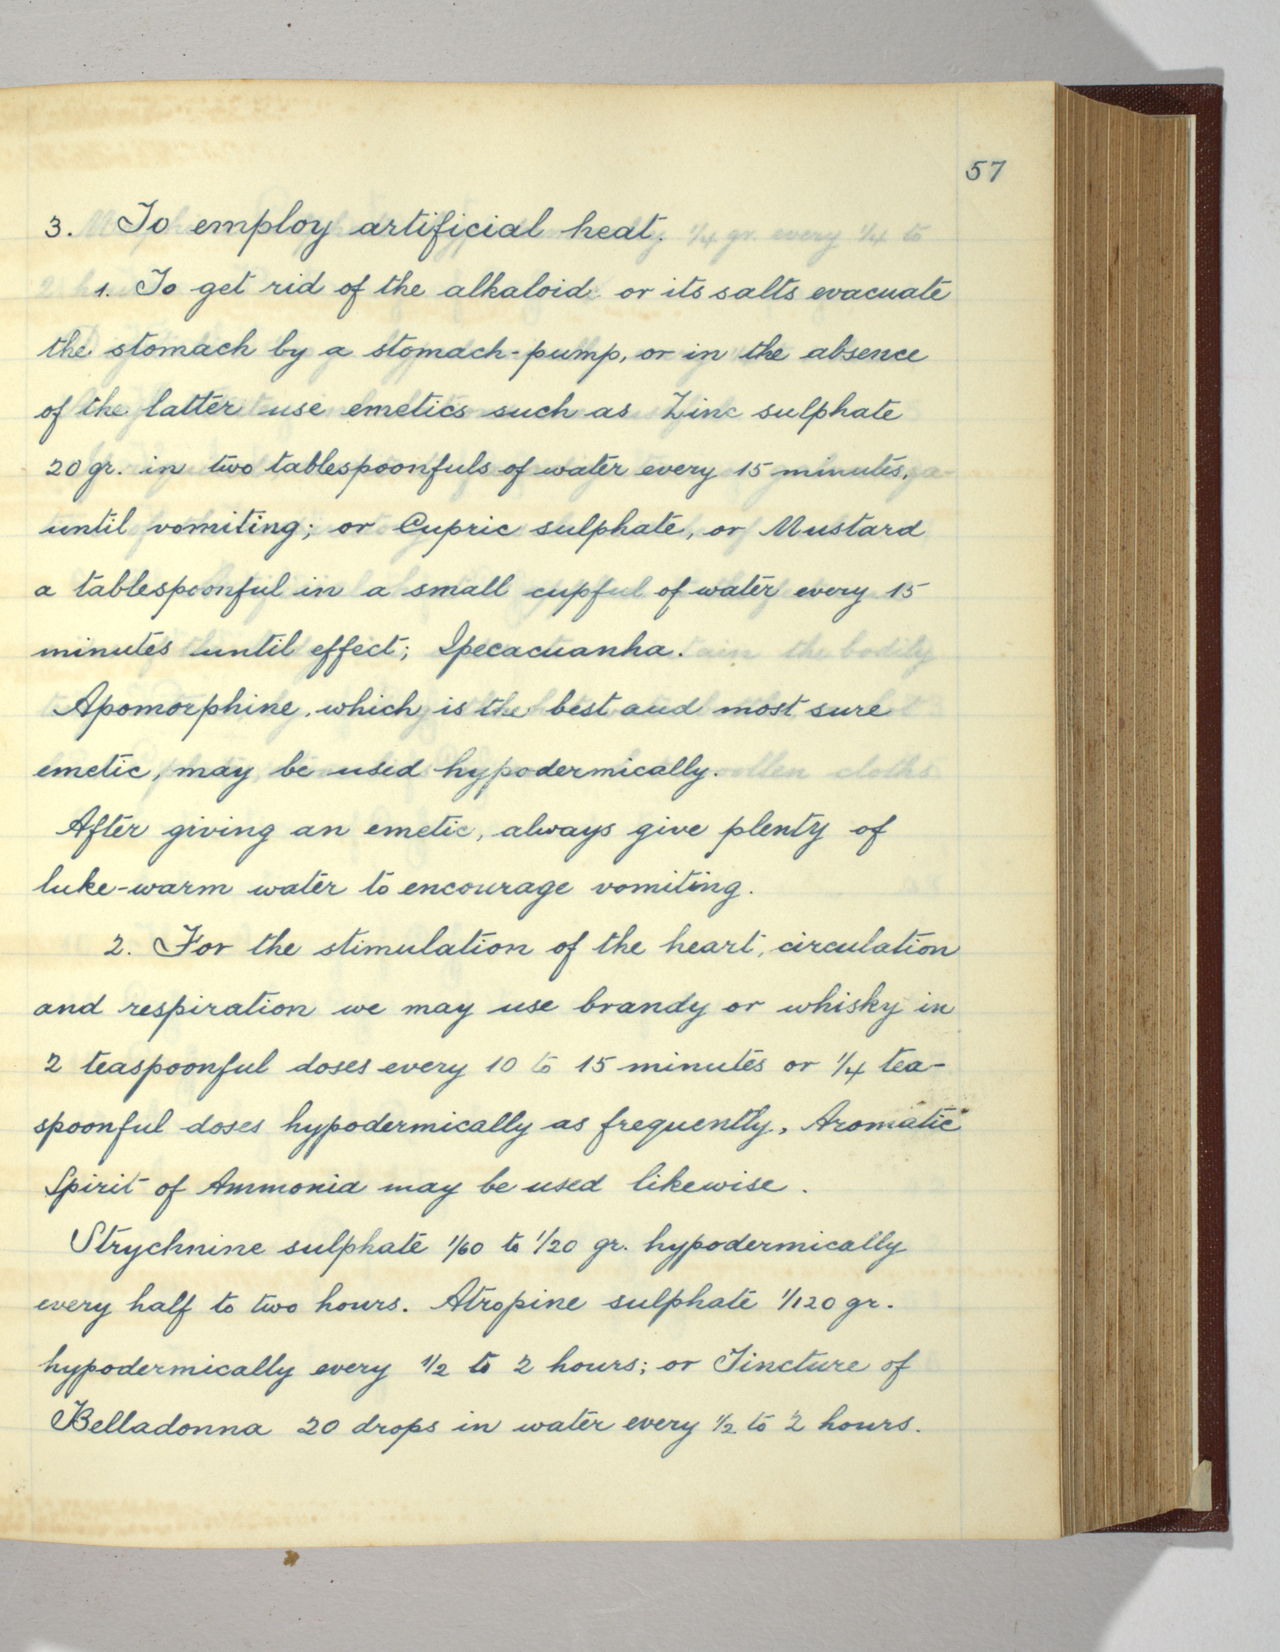 57
3. To employ artificial heat.
1. To get rid of the alkaloid or its salts evacuate
the stomach by a stomach-pump, or in the absence
of the latter use emetics such as Zinc sulphate
20 gr. in two tablespoonfuls of water every 15 minutes,
until vomiting; or Cupric sulphate, or Mustard
a tablespoonful in a small cupful of water every 15
minutes until effect; Ipecacuanha.
Apomorphine, which is the best and most sure
emetic, may be used hypodermically.
After giving an emetic, always give plenty of
luke-warm water to encourage vomiting.
2. For the stimulation of the heart, circulation
and respiration we may use brandy or whisky in
2 teaspoonful doses every 10 to 15 minutes or 1/4 tea-
spoonful doses hypodermically as frequently, Aromatic
Spirit of Ammonia may be used likewise.
Strychnine sulphate 1/60 to 1/20 gr. hypodermically
every half to two hours. Atropine sulphate 1/120 gr.
hypodermically every 1/2 to 2 hours; or Tincture of
Belladonna 20 drops in water every 1/2 to 2 hours.